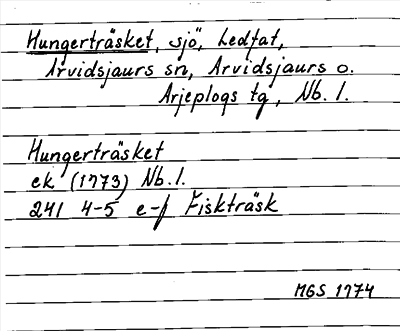 Hungerträsket, sjö, Ledfat,
Arvidsjaurs sn, Arvidsjaurs o.
Arjeplogs tg, Nb. l.
Hungerträsket
ek (1973) Nb. l.
241 4-5 e-f Fiskträsk
MGS 1974